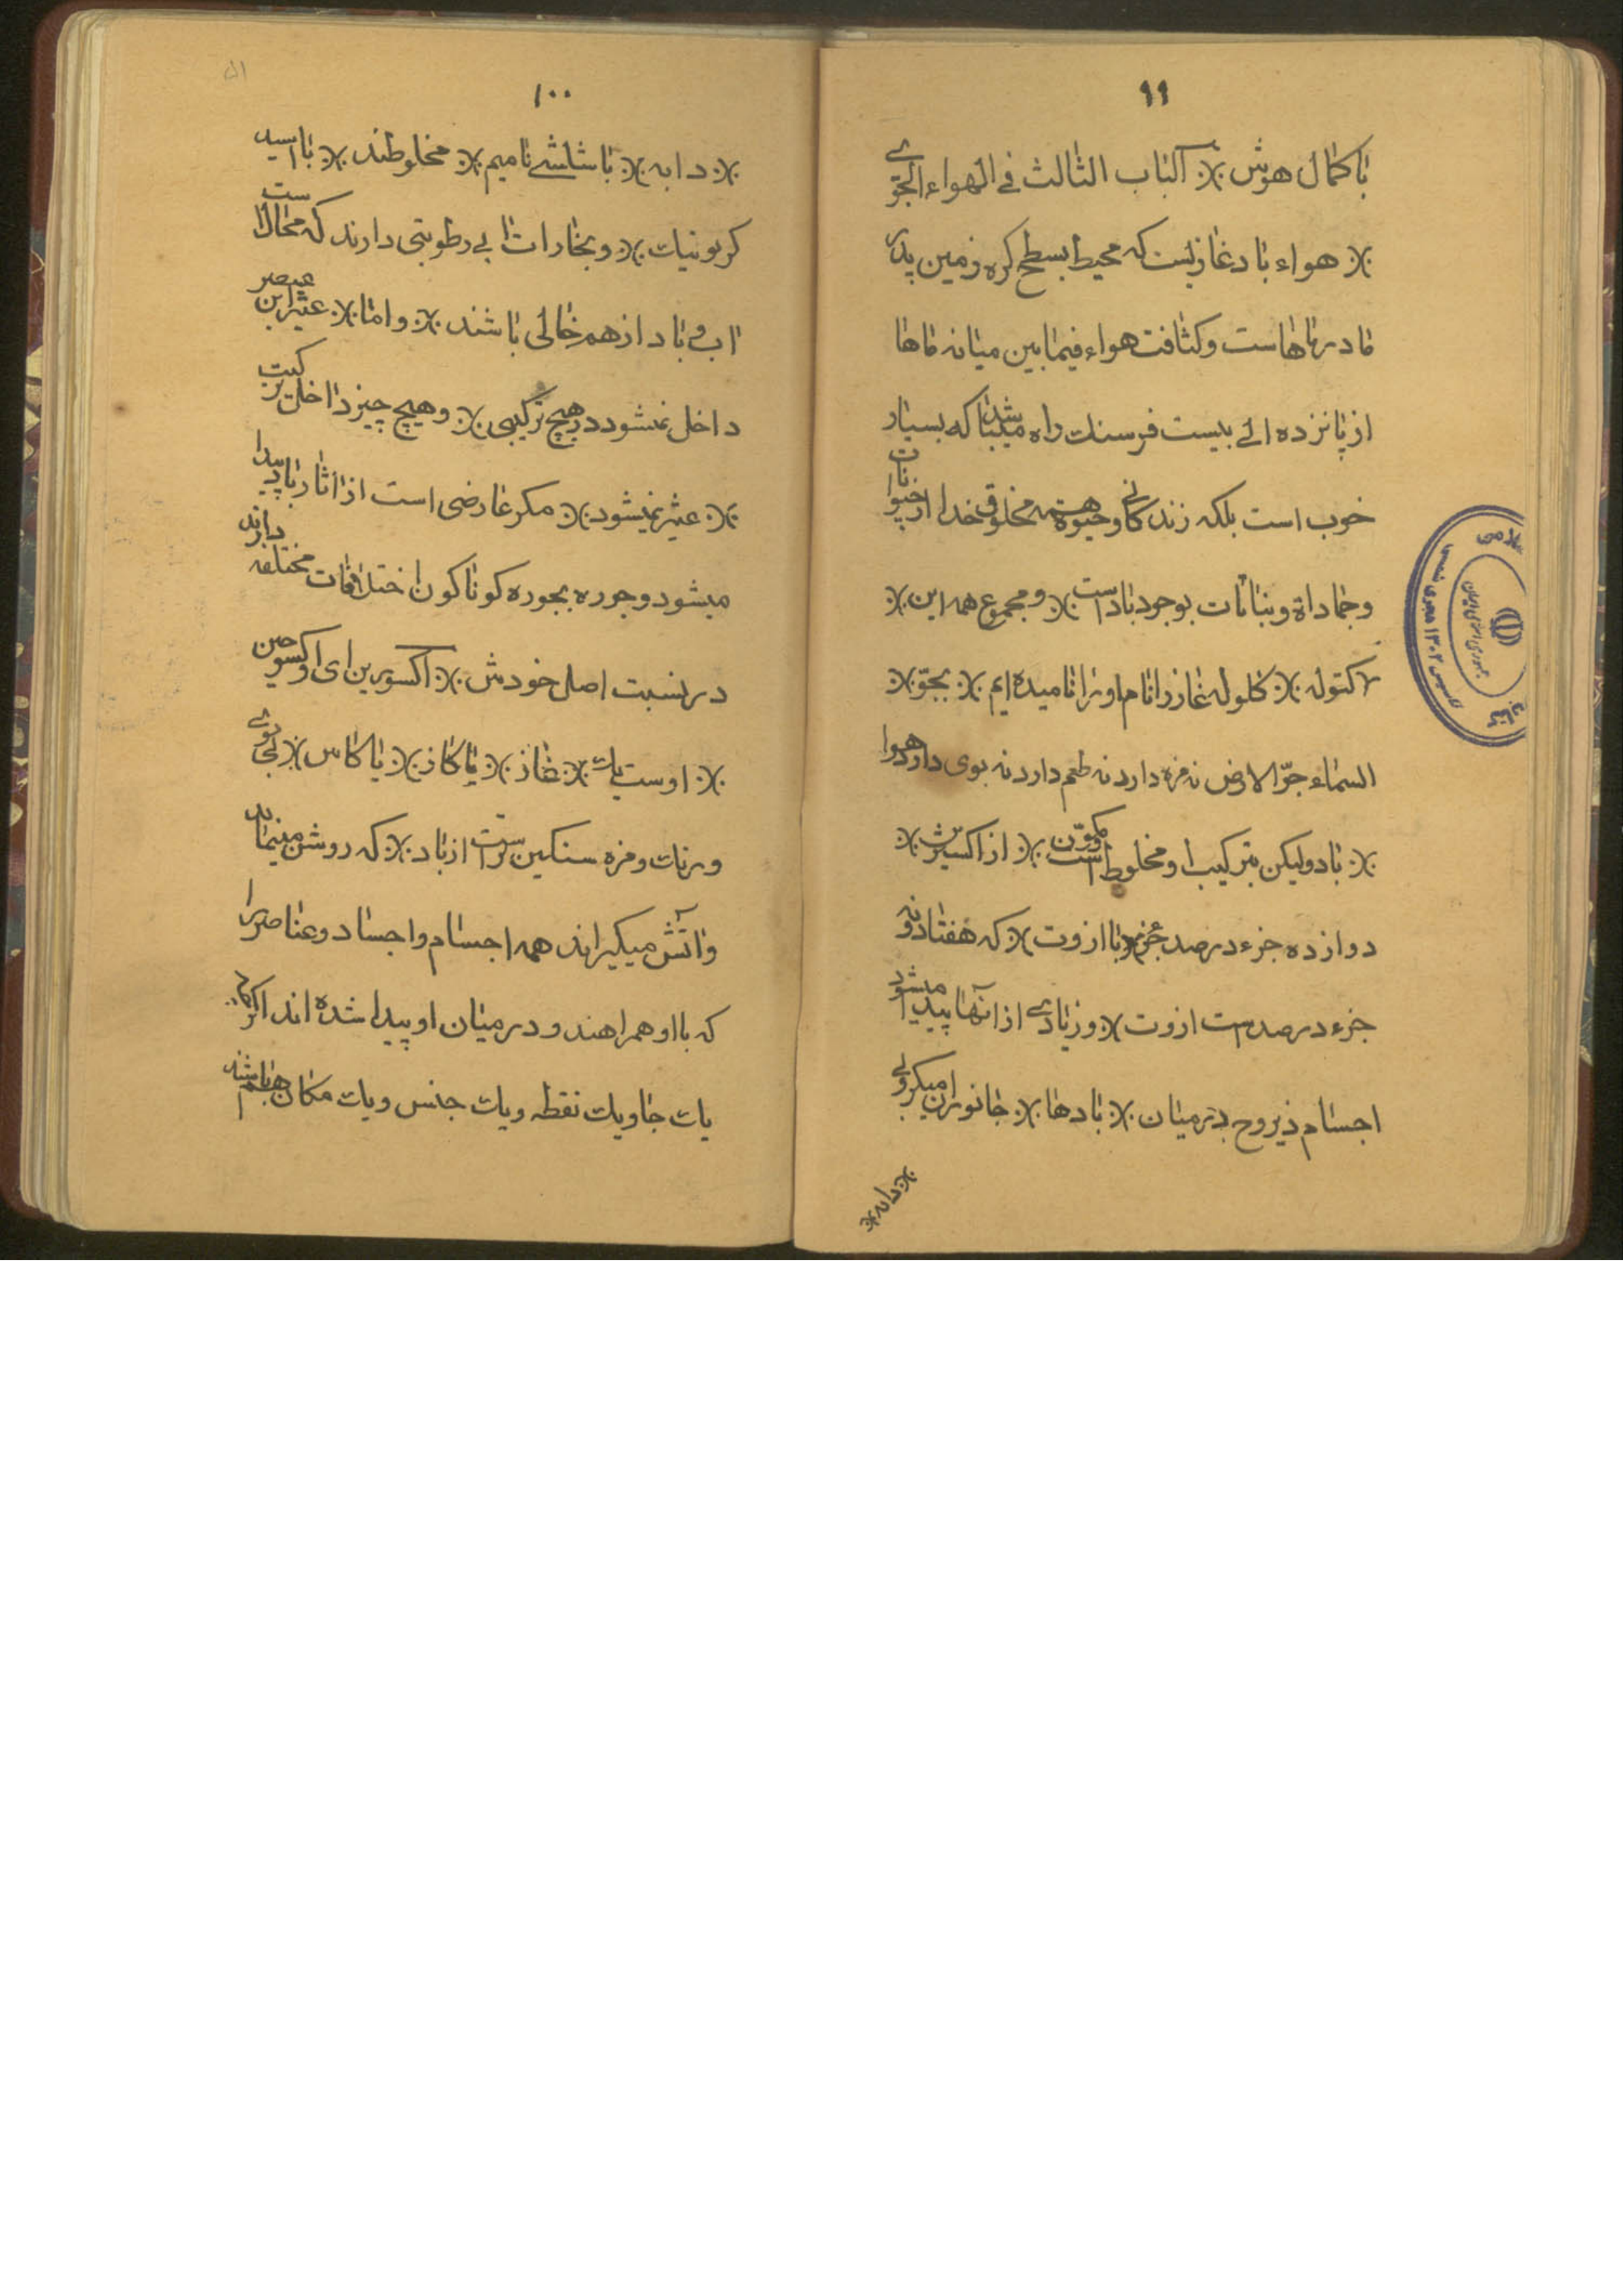 ۹۹
باکمال هوش ※ آلباب الثالث فی الهواء الجوّی
※ هواء باد غازیست که محیط بسطح کره زمین پدر
مادر ماهاست وکثافت هواء فیمابین میانه ماها
از پانزده الی بیست فرسنک راه میباشد که بسیار
خوب است بلکه زندکانی وحیوة همه مخلوق خدا از حیوانات
وجماداة ونباتات بوجود باد است ※ ومجموع همه این ※
کتوله ※ کلوله غاز را نام او را نامیده ایم ※ بجوّ ※
السماء جوّ الارض نه مزه دارد نه طعم دارد نه بوی دارد هوا
※ باد ولیکن بترکیب او مخلوط مکوّن است ※ از اکسیژن ※
دوازده جزء درصد جزء با ازوت ※ که هفتاد ونه
جزء درصد ست ازوت ※ وزیادی از آنها پیدا میشود
اجسام ذیروح در میان ※ بادها ※ جانوران میکروبی
※ دابه ※
۱۰۰
※ دابه ※ باشاشی نامیم ※ مخلوطند ※ با اسید
کربونیات ※ وبخارات ابی رطوبتی دارند که محال است
اب و باد از هم خالی باشند ※ واما ※ عثیر این عنصر
داخل نمیشود در هیچ ترکیبی ※ وهیچ چیز داخل ترکیب
※ عثیر نمیشود ※ مکر عارضی است از اثار باد پیدا
میشود وجوره بجوره کوناکون اختلافات مختلفه دارند
در نسبت اصل خودش ※ آکسورین ای اوکسوجین
※ اوست یک ※ غاز ※ یا کاز ※ یا کاس ※ بی بوی
ورنک ومزه سنکین تر است از باد ※ که روشن مینماید
واتش میکیراند همه اجسام واجساد وعناصر را
که با او همراهند و در میان او پیدا شده اند اکر
یک جا ویک نقطه ویک جنس ویک مکان هم باشند